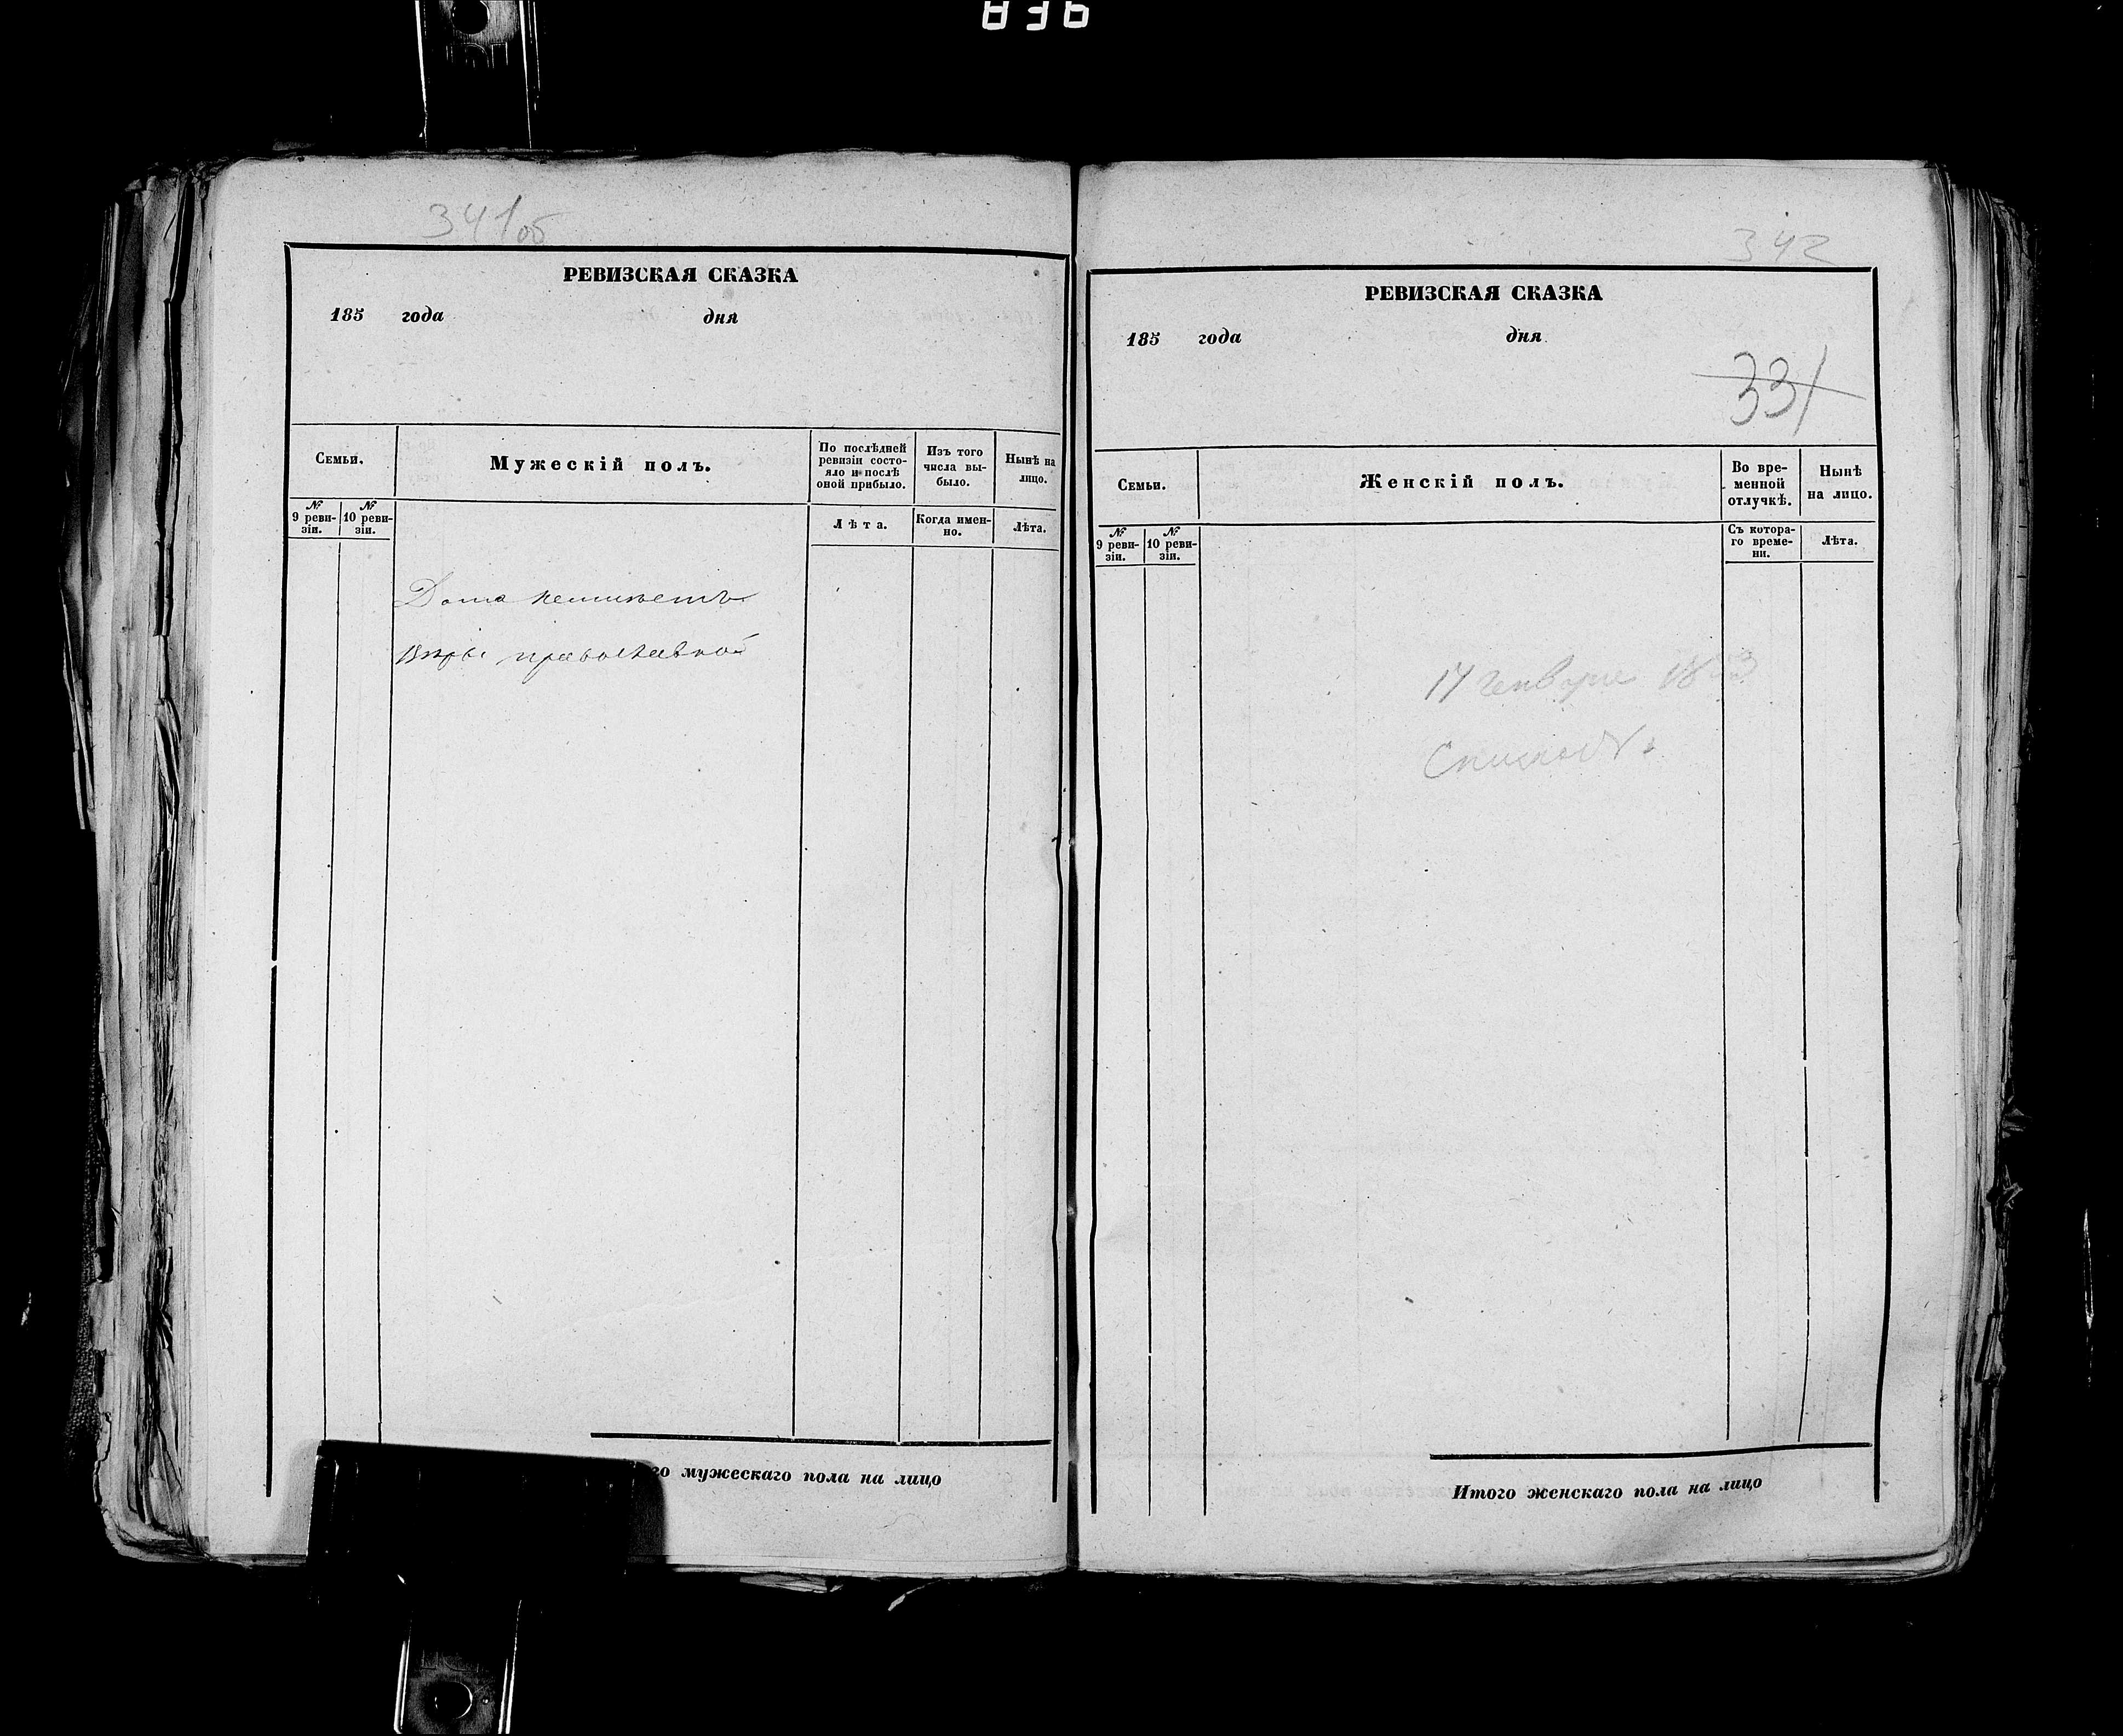 836
341об
РЕВИЗСКАЯ СКАЗКА
185 года дня
Семьи.
Мужескій полъ.
По послѣдней ревизіи состояло и послѣ оной прибыло.
Изъ того числа выбыло.
Нынѣ на лицо.
№ 9 ревизіи.
№ 10 ревизіи.
Лѣта.
Когда именно.
Лѣта.
Дома неимѣетъ
Вѣры православной
го мужескаго пола на лицо
342
РЕВИЗСКАЯ СКАЗКА
185 года дня
331
Семьи.
Женскій полъ.
Во временной отлучкѣ.
Нынѣ на лицо.
№ 9 ревизіи.
№ 10 ревизіи.
Съ котораго времени.
Лѣта.
17 генваря
Итого женскаго пола на лицо